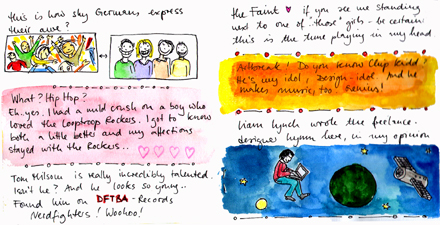 this is how shy Germans express
their awe?
What? Hip Hop?
Eh..yes. I had a mild crush on a boy who
loved the Looptroop Rockers. I got to know
both a little better and my affections
stayed with the Rockers..
Tom Milsom is really incredibly talented.
Isn't he? And he looks so young..
Found him on DFTBA-Records
Nerdfighters! Woohoo!
the Faint ♥ if you see me standing
next to one of those girls - be certain
this is the tune playing in my head.
! Do you know Chip Kidd?
He's my idol, design-idol. And he
makes music, too! Genius!
Liam Lynch wrote the freelance
designer hymn here, in my opinion